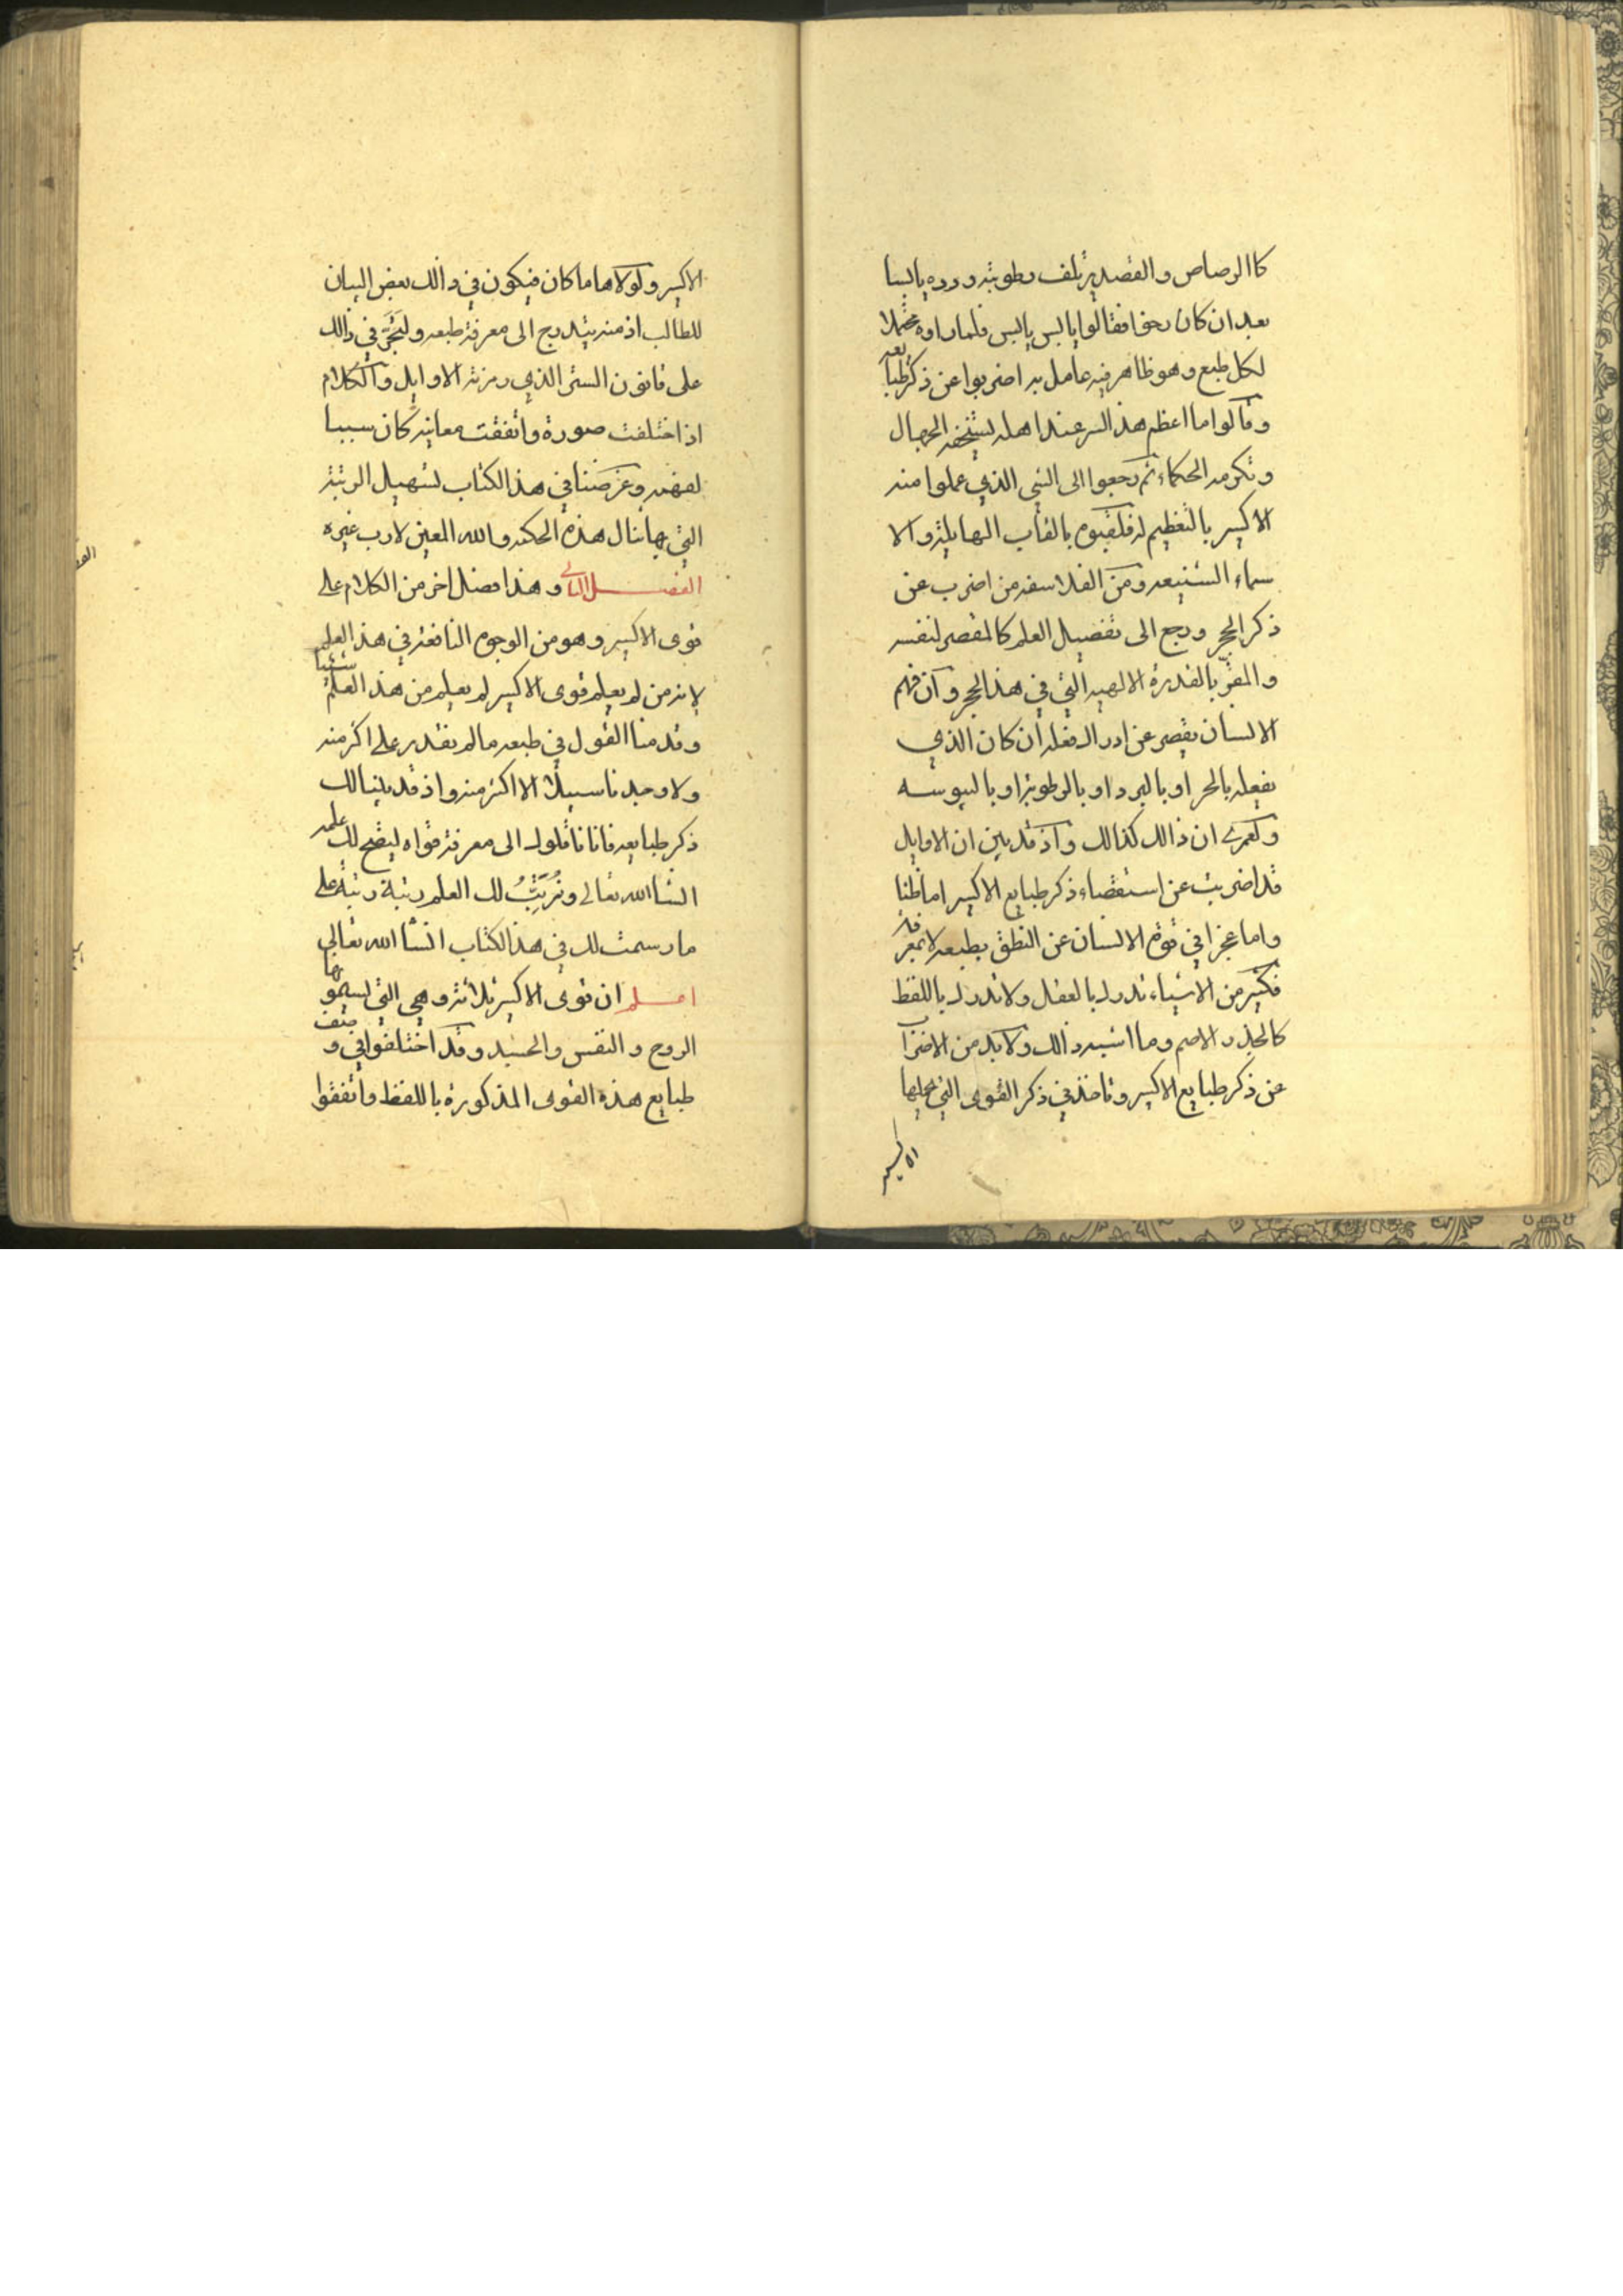 كاالرصاص والقصدير تلف رطوبته ورده يابسا
بعد ان كان رخوا فقالوا يابس يابس فلما راوه محتملا
لكل طبع وهو ظاهر فيه عامل به اضربوا عن ذكر طبايعه
وقالوا ما اعظم هذ السر عند اهله يستخفه الجهال
وتكرمه الحكماء ثم رجعوا الى الشي الذي عملوا منه
الاكسير بالتعظيم له فلقبوه بالقاب الهايلة والا
سماء الشنيعه ومن الفلاسفه من اضرب عن
ذكر الحجر ورجع الى تفضيل العلم كالمقصر لنفسه
والمقرّ بالقدرة الالهيه التي في هذ الحجر وان فهم
الانسان يقصر عن ادراك فعله ان كان الذي
يفعله بالحر او بالبرد او بالرطوبة او باليبوسه
ولعمري ان ذالك كذالك واذ قد بين ان الاوايل
قد اضربت عن استقضاء ذكر طبايع الاكسير اما ظنا
واما عجزا في قوة الانسان عن النطق بطبعه لا بمعرفته
فكثير من الاشياء تدرك بالعقل ولا تدرك باللفظ
كالجذر الاصم وما اشبه ذالك ولا بد من الاضراب
عن ذكر طبايع الاكسير وناخذ في ذكر القوى التي عملها
الاكسير
الاكسير ولولاها ما كان فيكون في ذالك بعض البيان
للطالب اذ منه يتدرج الى معرفة طبعه ولنجر في ذالك
على قانون الستر الذي رمزته الاوايل والكلام
اذا اختلفت صورة واتفقت معانيه كان سببا
لفهمه وغرضنا في هذ الكتاب تسهيل الرتبة
التي بها ينال هذه الحكمه والله المعين لا رب غيره
الفصل الثاني وهذا فصل اخر من الكلام على
قوى الاكسير وهو من الوجوه النافعة في هذ العلم
لانه من لم يعلم قوى الاكسير لم يعلم من هذ العلم شيئا
وقدمنا القول في طبعه ما لم نقدر على اكثر منه
ولا وجدنا سبيلا الا اكثر منه واذ قد بينا لك
ذكر طبايعه فانا ناقلوك الى معرفة قواه ليتضح لك علمه
انشا الله تعالى ونُرَتِّبُ لك العلم رتبة رتبة على
ما رسمت لك في هذ الكتاب انشا الله تعالى
اعلم ان قوى الاكسير ثلاثة وهي التي يسموها
الروح والنفس والجسد وقد اختلفوا في وصف
طبايع هذه القوى المذكورة باللفظ واتفقوا